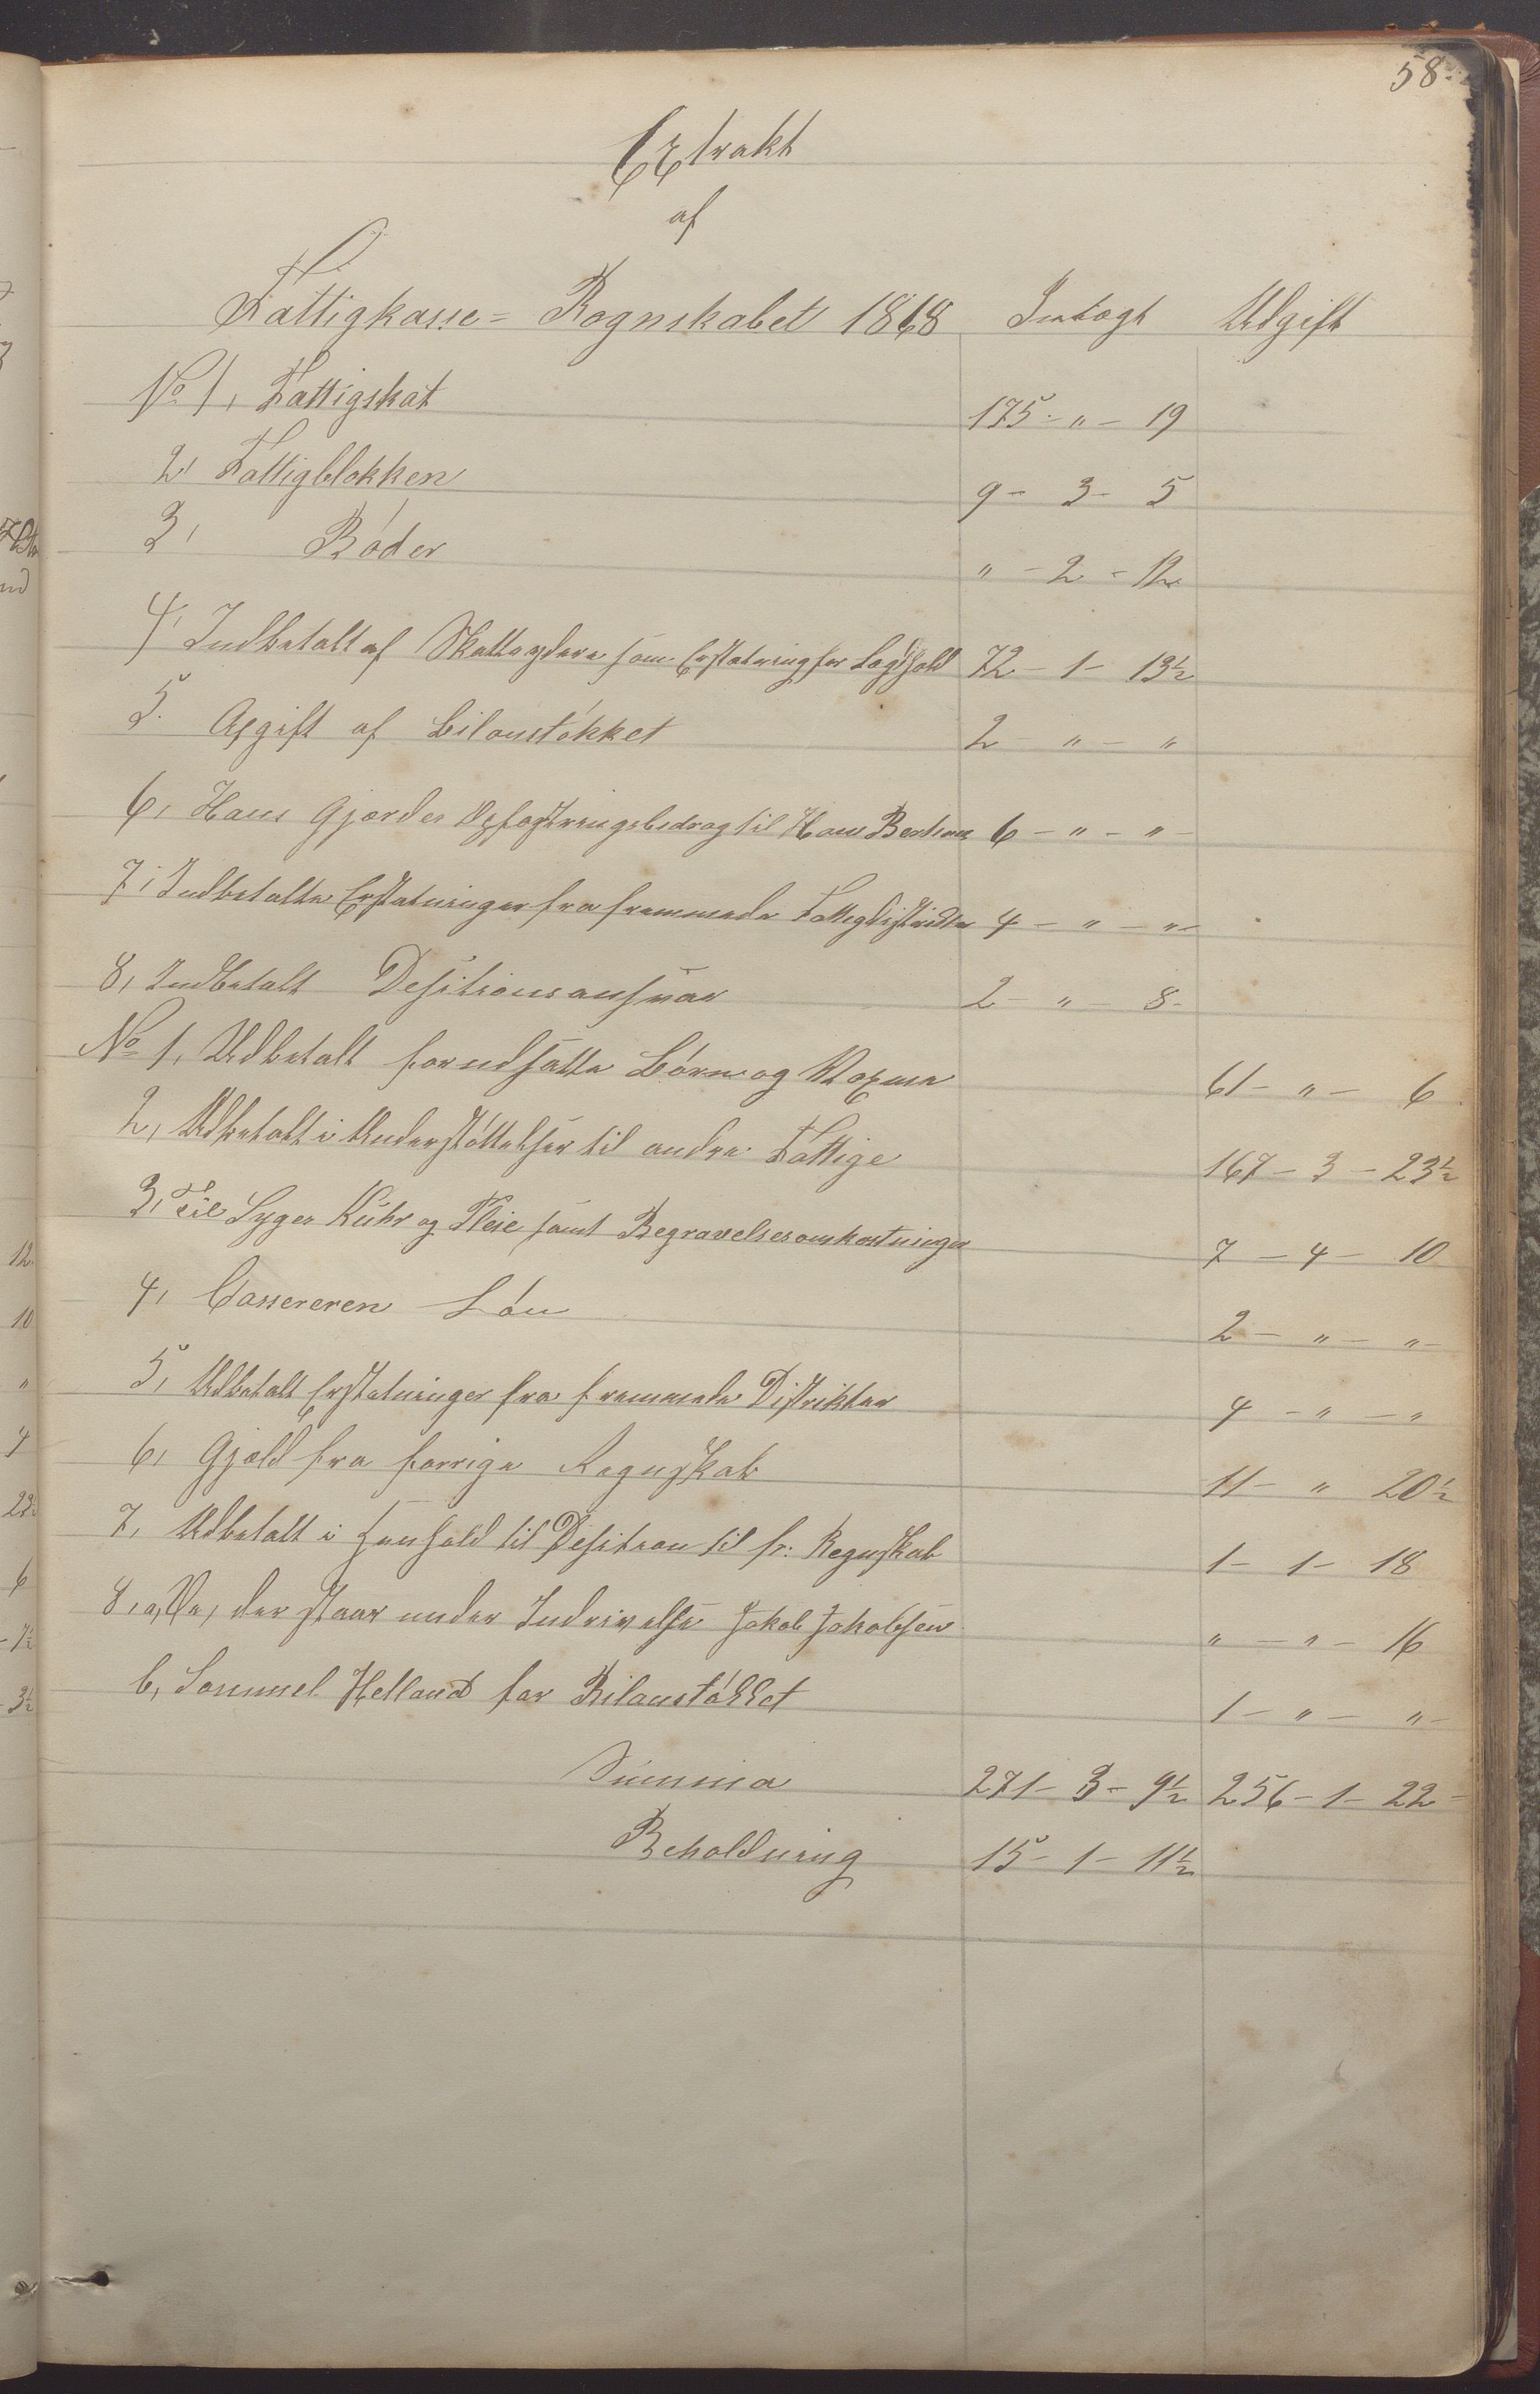 58.
Extrakt
af
Fattigkasse= Regnskabet 1868 Indtægt Udgift
No 1, Fattigskat 175 - " - 19
2, Fattigblokken 9 - 3 - 5
3, Bøder " - 2 - 12
4, Indbetalt af Skatteydere som Erstatning for Lægdhold 72 - 1 - 13½
5. Afgift af Bilanstøkket 2 - " - "
6, Hans Gjerdes Opfostringsbedrag til Hans 6 - " - " -
7, Indbetalte Erstatninger fra fremmede Fattigdistrikter 4 - " - " -
8, Indbetalt Desitionsansvar 2 - " - 8 -
No 1, Udbetalt for udsatte Børn og Voxne 61 - " - 6
2, Udbetalt i Understøttelser til andre Fattige 167 - 3 - 23½
3, Til Syges Kuhr og Pleie samt Begravelsesomkostninger 7 - 4 - 10
4, Cassereren Løn 2 - " - " -
5, Udbetalt Erstatninger fra fremmede Distrikter 4 - " - "
6, Gjæld fra forrige Regnskab 11 - " 20½
7, Udbetalt i Henhold til Desition til fr: Regnskab 1 - 1 - 18
8, a, der staar under Inddrivelse Jakob Jakobsen " - " - 16
b, Sammel Helland for Bilanstøkket 1 - " - " -
Summa 271 - 3 - 9½ 256 - 1 - 22 -
Beholdning 15 - 1 - 11½